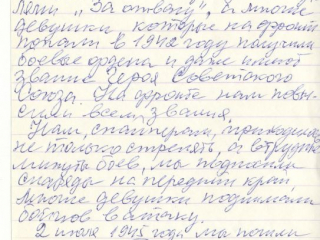 лами "За отвагу", а многие
девушки которые на фронт
попали в 1942 году получили
боевые ордена и даже имеют
звание Героя Советского
Союза. На фронте нам повы-
сили всем, звания.
Нам, снайперам, приходилось
не только стрелять, а в трудные
минуты боев, мы подносили
снаряды на передний край,
многие девушки поднимали
бойцов в атаку.
2 июля 1945 года мы